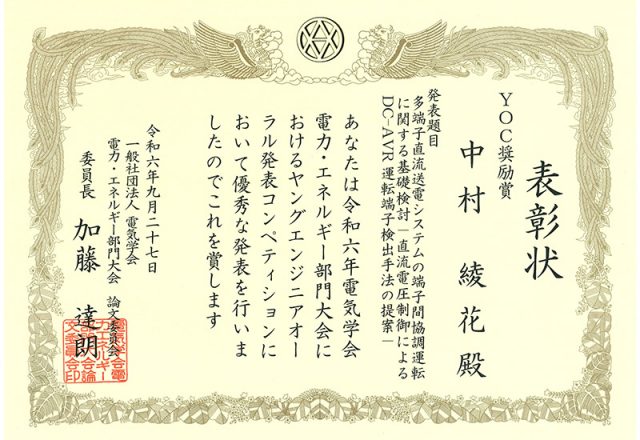 表彰状
YOC奨励賞
中村 綾花 殿
発表題目
多端子直流送電システムの端子間協調運転
に関する基礎検討―直流電圧制御による
DC-AVR運転端子検出手法の提案―
あなたは令和六年電気学会
電力・エネルギー部門大会に
おけるヤングエンジニアオー
ラル発表コンペティションに
おいて優秀な発表を行いま
したのでこれを賞します
令和六年九月二十七日
一般社団法人 電気学会
電力・エネルギー部門大会 論文委員会
委員長 加藤 達朗
電気学会電
力エネルギー
部門大会論
文委員会印